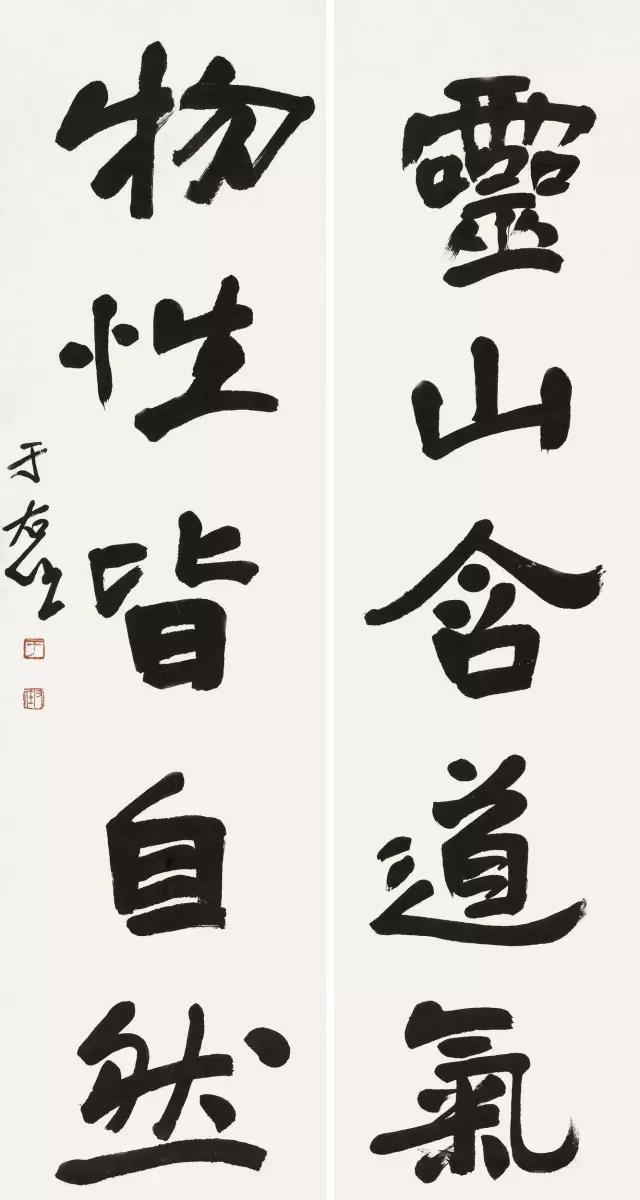 靈山含道氣
物性皆自然
于右任